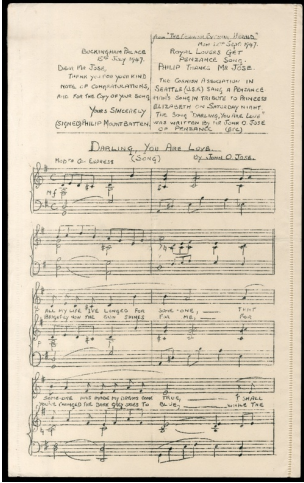 Buckingham Palace
5th July 1947.
Dear Mr Jose,
Thank you for your kind
note of congratulations,
and for the copy of your song
Yours Sincerely
(Signed) Philip Mountbatten.
from "The Cornish Evening Herald"
Mon 10th Sept. 1947.
Royal Lovers Get
Penzance Song.
Philip Thanks Mr Jose.
The Cornish Association in
Seattle (USA) sang a Penzance
man's song in tribute to Princess
Elizabeth on Saturday night
The song "Darling, You Are Love"
was written by Mr John O. Jose
of Penzance (etc)
Darling, You Are Love.
(Song)
by John O. Jose.
Mf
All my life I've longed for some-one, — that
Brightly now the sun shines for me, — for
some-one who makes my dreams come true, — I shall
you've changed the grey skies to blue, — while the